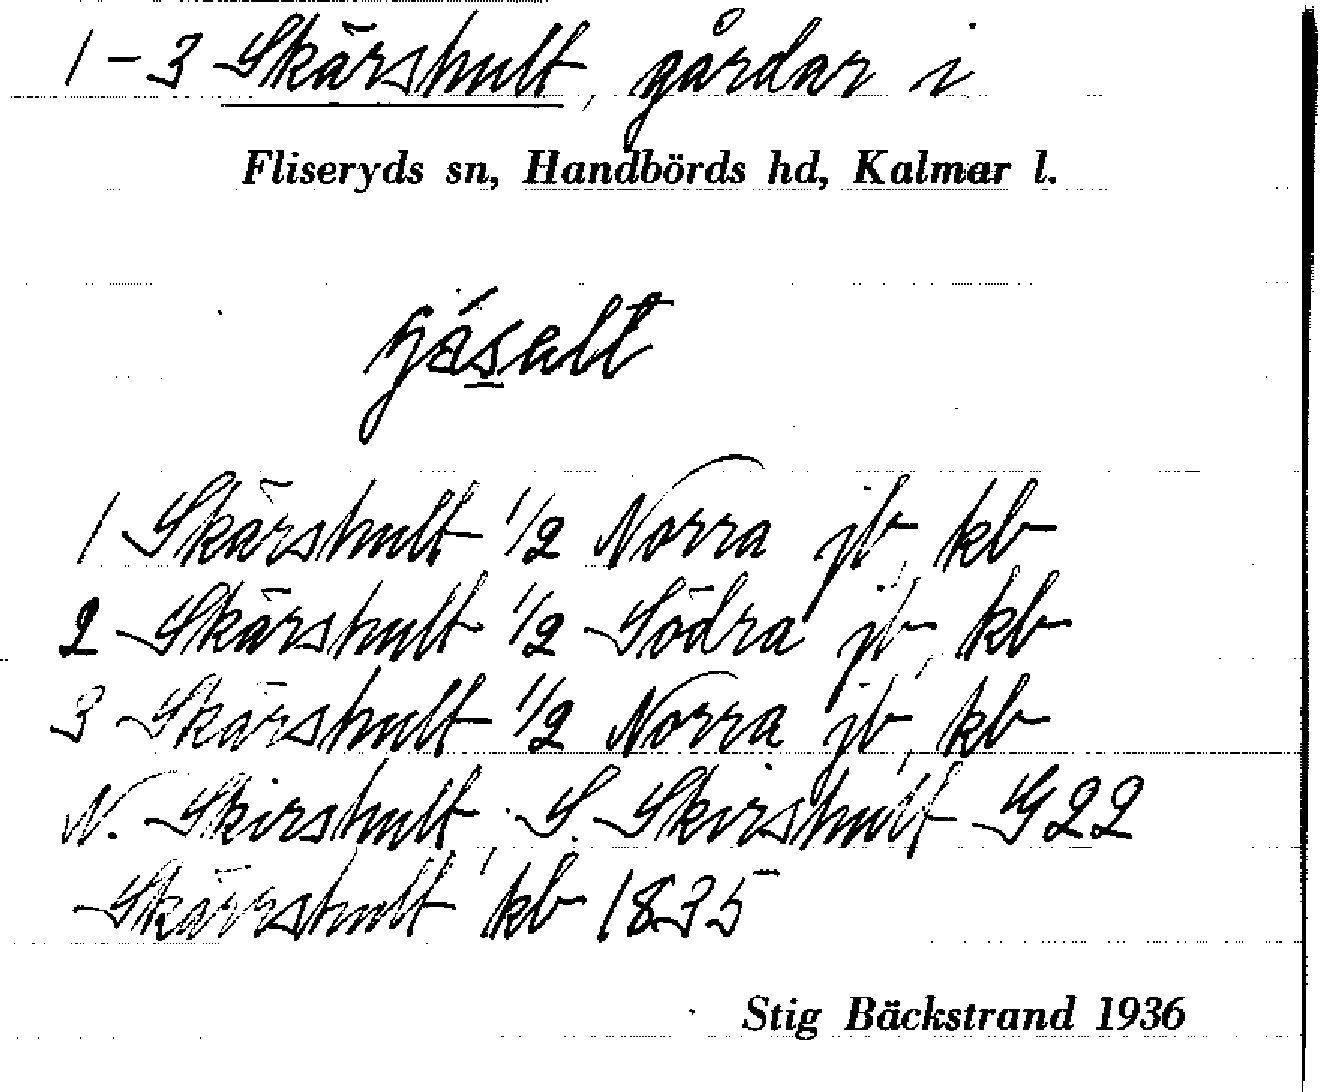 1-3 Skärshult, gårdar i
Fliseryds sn, Handbörds hd, Kalmar l.
1 Skärshult 1/2 Norra jb, kb
2 Skärshult 1/2 Södra jb, kb
3 Skärshult 1/2 Norra jb, kb
N. Skirshult, S. Skirshult G22
Skärrshult kb 1835
Stig Bäckstrand 1936